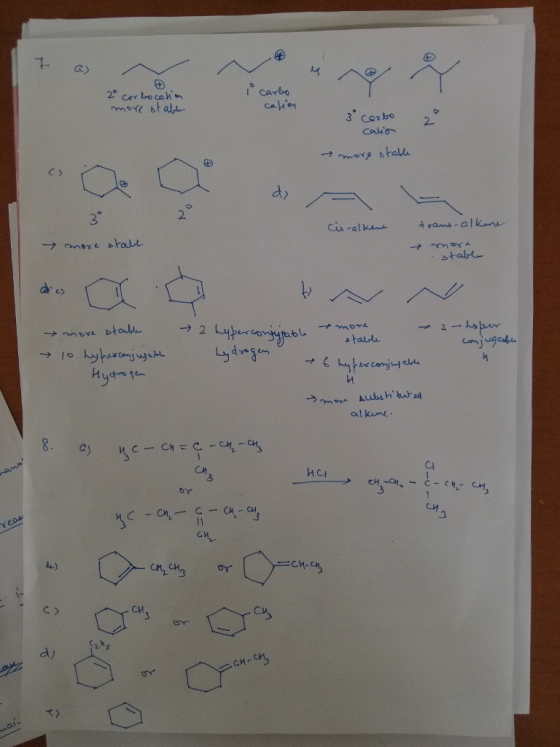 7. a)
⊕ ⊕
2° carbocation
more stable
1° carbo
cation
b) ⊕ ⊕
3° carbo
cation
2°
→ more stable
c) ⊕ ⊕
3° 2°
→ more stable
d)
cis-alkene trans-alkene
→ more
stable
e)
→ more stable
→ 10 hyperconjugable
Hydrogen
→ 2 hyperconjugable
hydrogen
f)
→ more
stable
→ 6 hyperconjugable
H
→ more substituted
alkene.
→ 2 - hyper
conjugable
H
8. a) H₃C - CH = C - CH₂ - CH₃
CH₃
or
H₃C - CH₂ - C - CH₂ - CH₃
CH₂
HCl
Cl
CH₃-CH₂ - C - CH₂ - CH₃
CH₃
b) CH₂CH₃ or =CH-CH₃
c) CH₃ or CH₃
d) C₂H₅ or CH-CH₃
e)